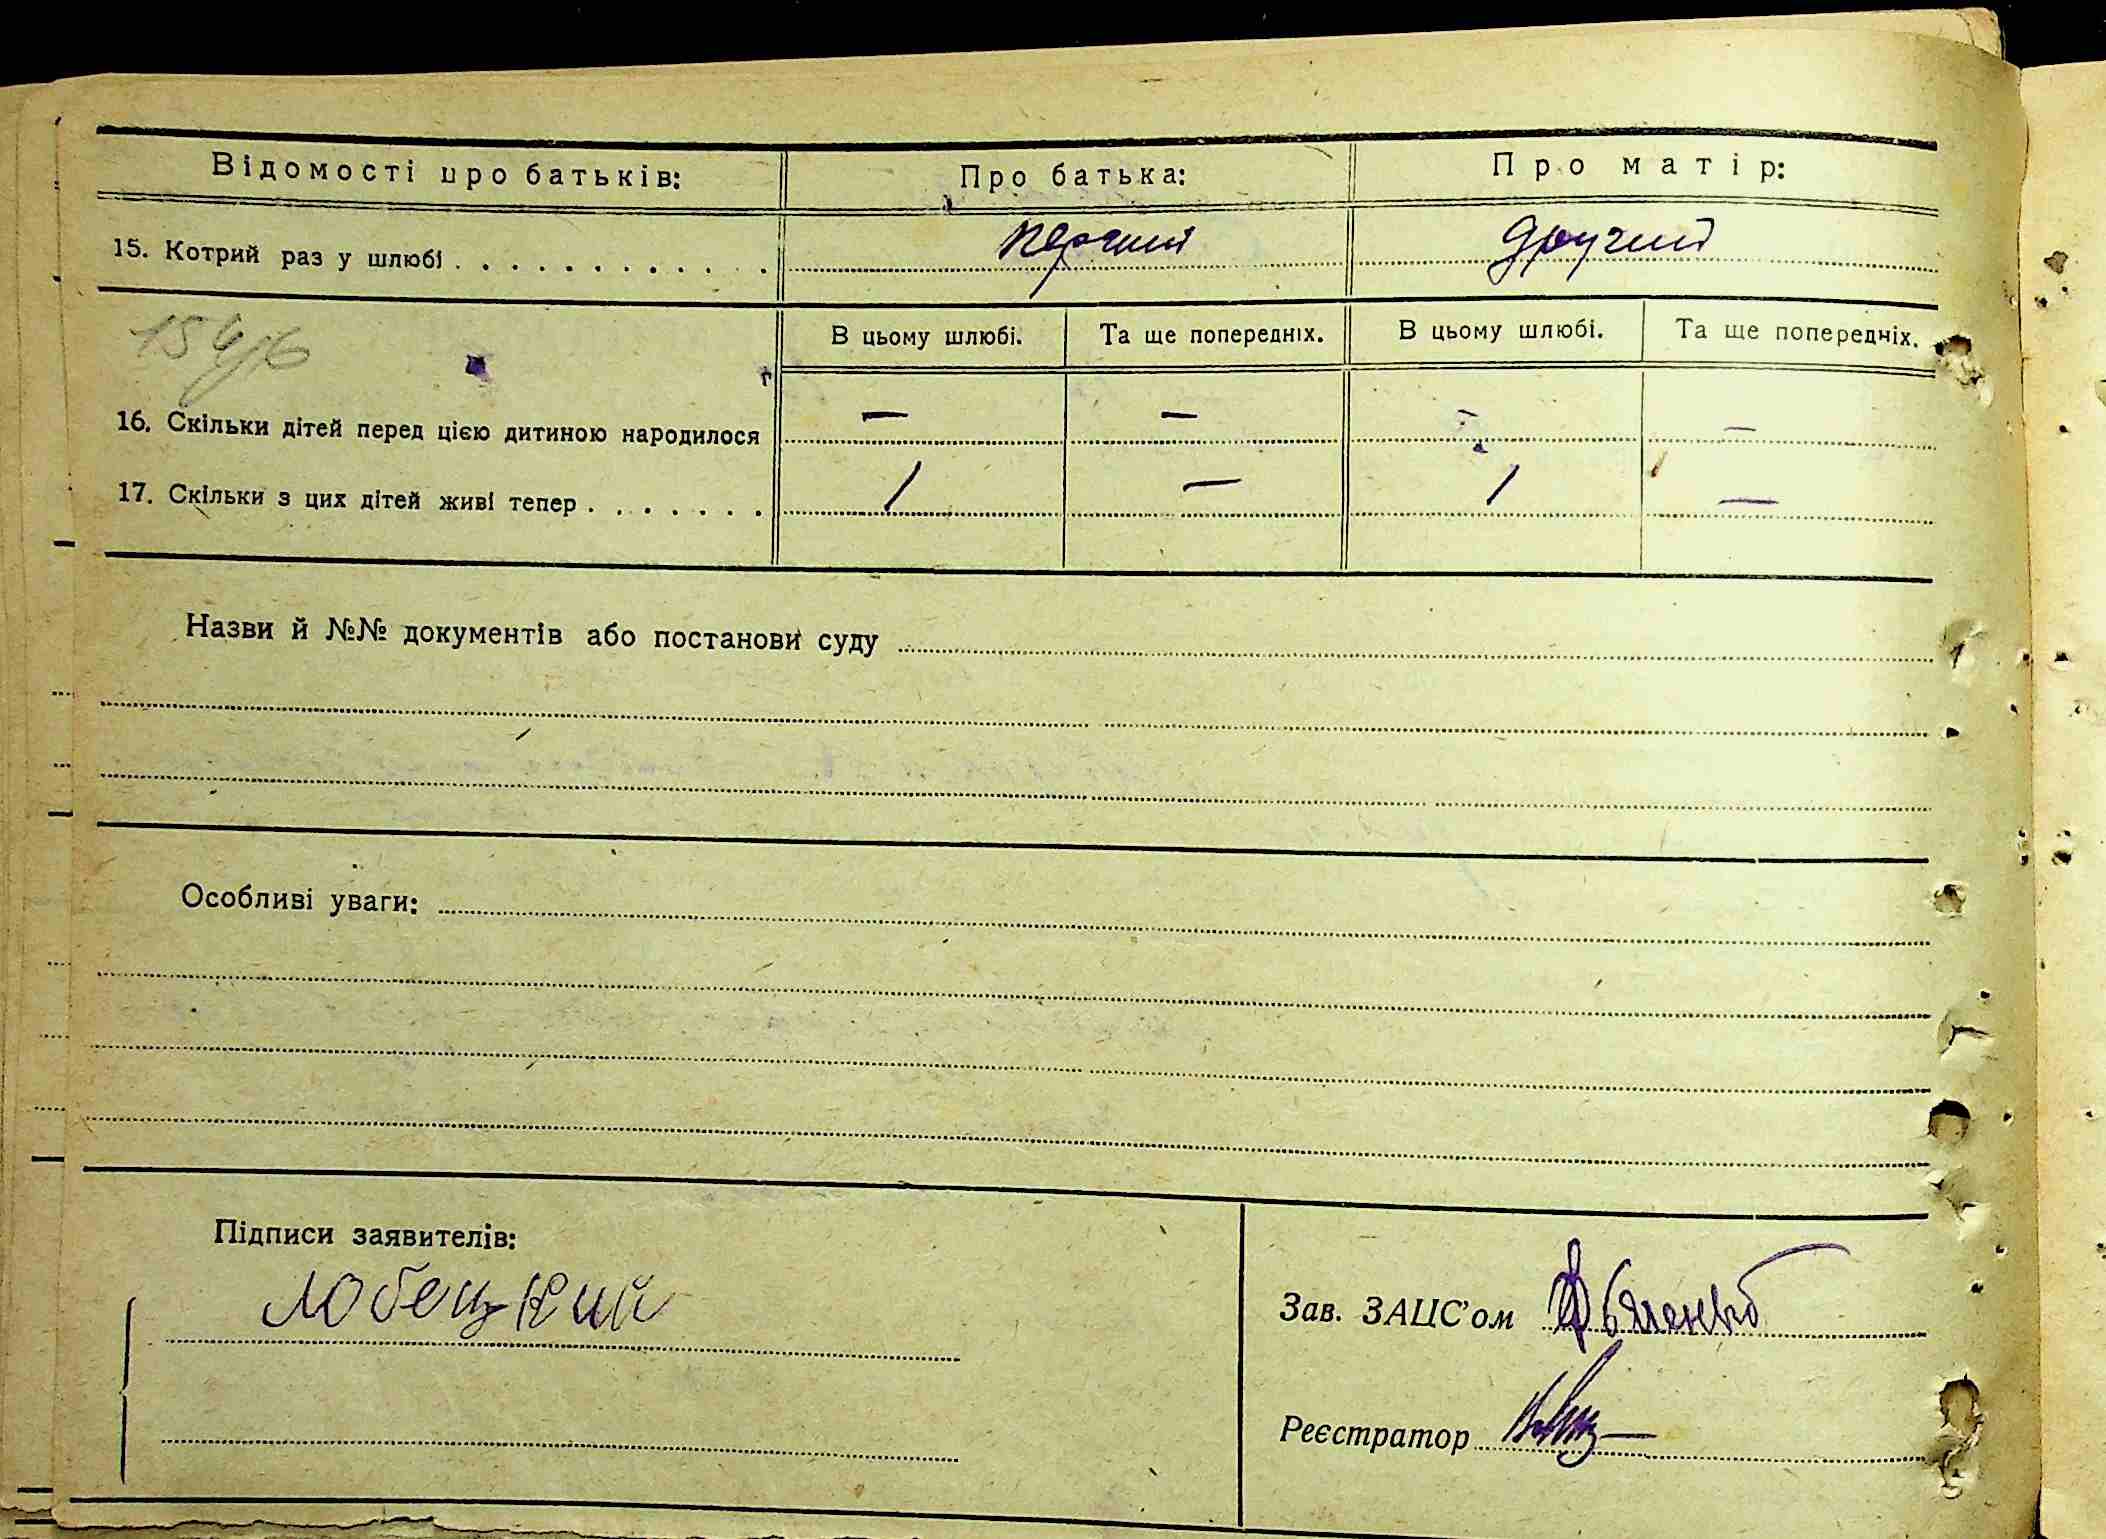 Відомості про батьків: Про батька: Про матір:
15. Котрий раз у шлюбі . . . . . . . . . . . . перший другий
154/6
В цьому шлюбі. Та ще попередніх. В цьому шлюбі. Та ще попередніх.
16. Скільки дітей перед цією дитиною народилося — — - —
17. Скільки з цих дітей живі тепер . . . . . . . 1 — 1 —
Назви й №№ документів або постанови суду
Особливі уваги:
Підписи заявителів:
Лобецкий
Зав. ЗАЦС'ом
Реєстратор